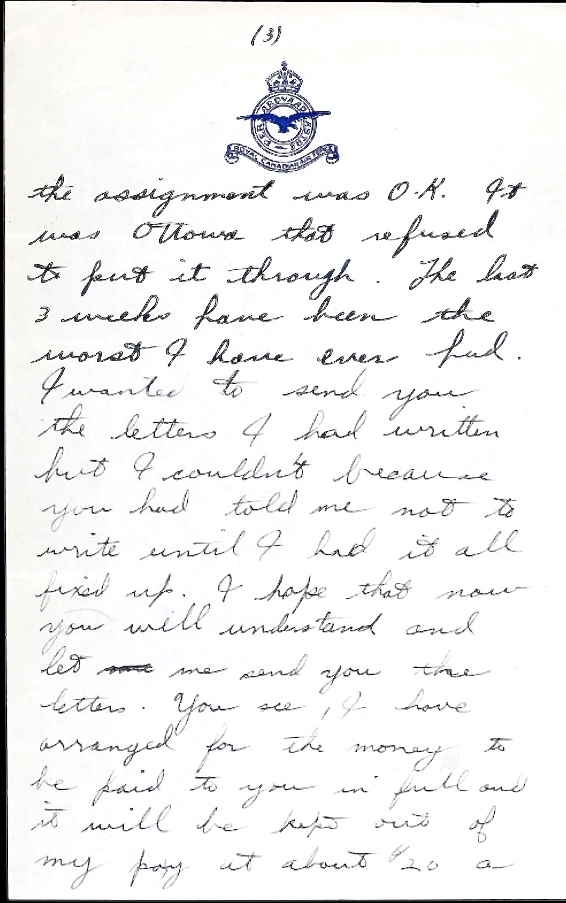 (3)
PER ARDUA AD ASTRA
ROYAL CANADIAN AIR FORCE
the assignment was O.K. It
was Ottowa that refused
to put it through. The last
3 weeks have been the
worst I have ever had.
I wanted to send you
the letters I had written
but I couldn't because
you had told me not to
write until I had it all
fixed up. I hope that now
you will understand and
let me send you the
letters. You see, I have
arranged for the money to
be paid to you in full and
it will be kept out of
my pay at about $20 a